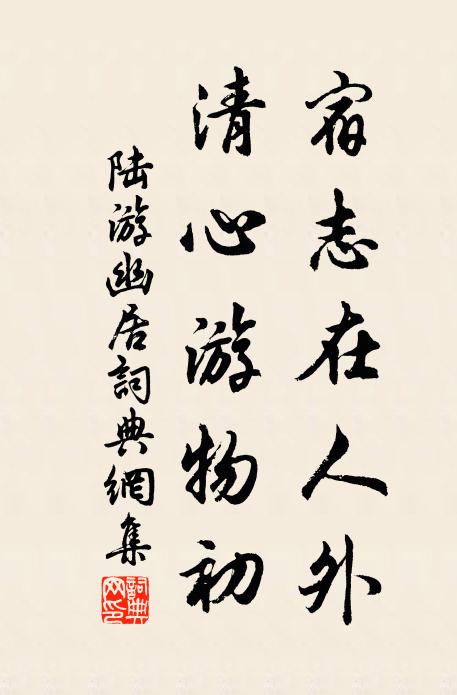 宿志在人外
清心游物初
陆游幽居詞典網集
詞典网印